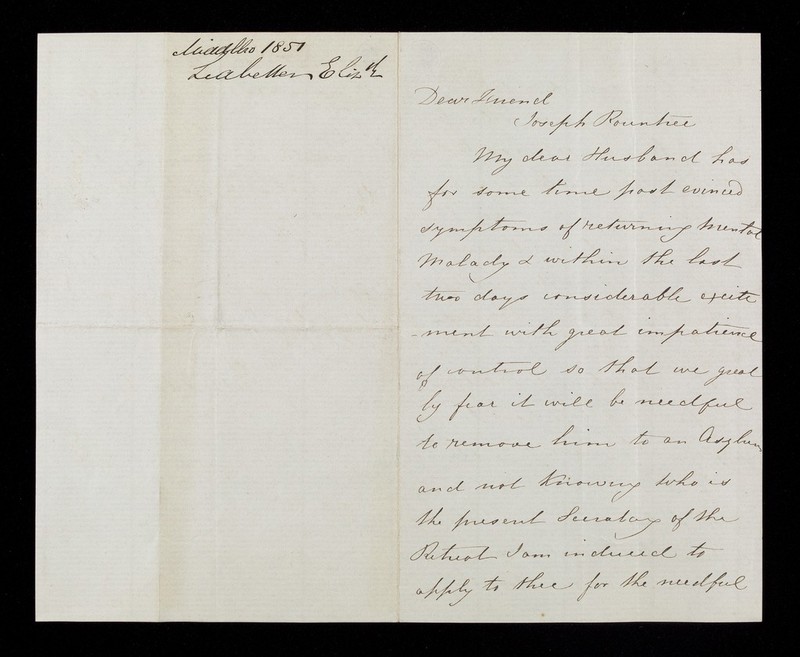 Middlbro 1851
Eliz.th
Dear Friend
Joseph Rountree
My dear Husband has
for some time past evinced
symptoms of returning mental
malady & within the last
two days considerable excite
-ment with great impatience
of control so that we great
ly fear it will be needful
to remove him to an Asylum
and not knowing who is
the present Secretary of the
Retreat I am induced to
apply to thee for the needful